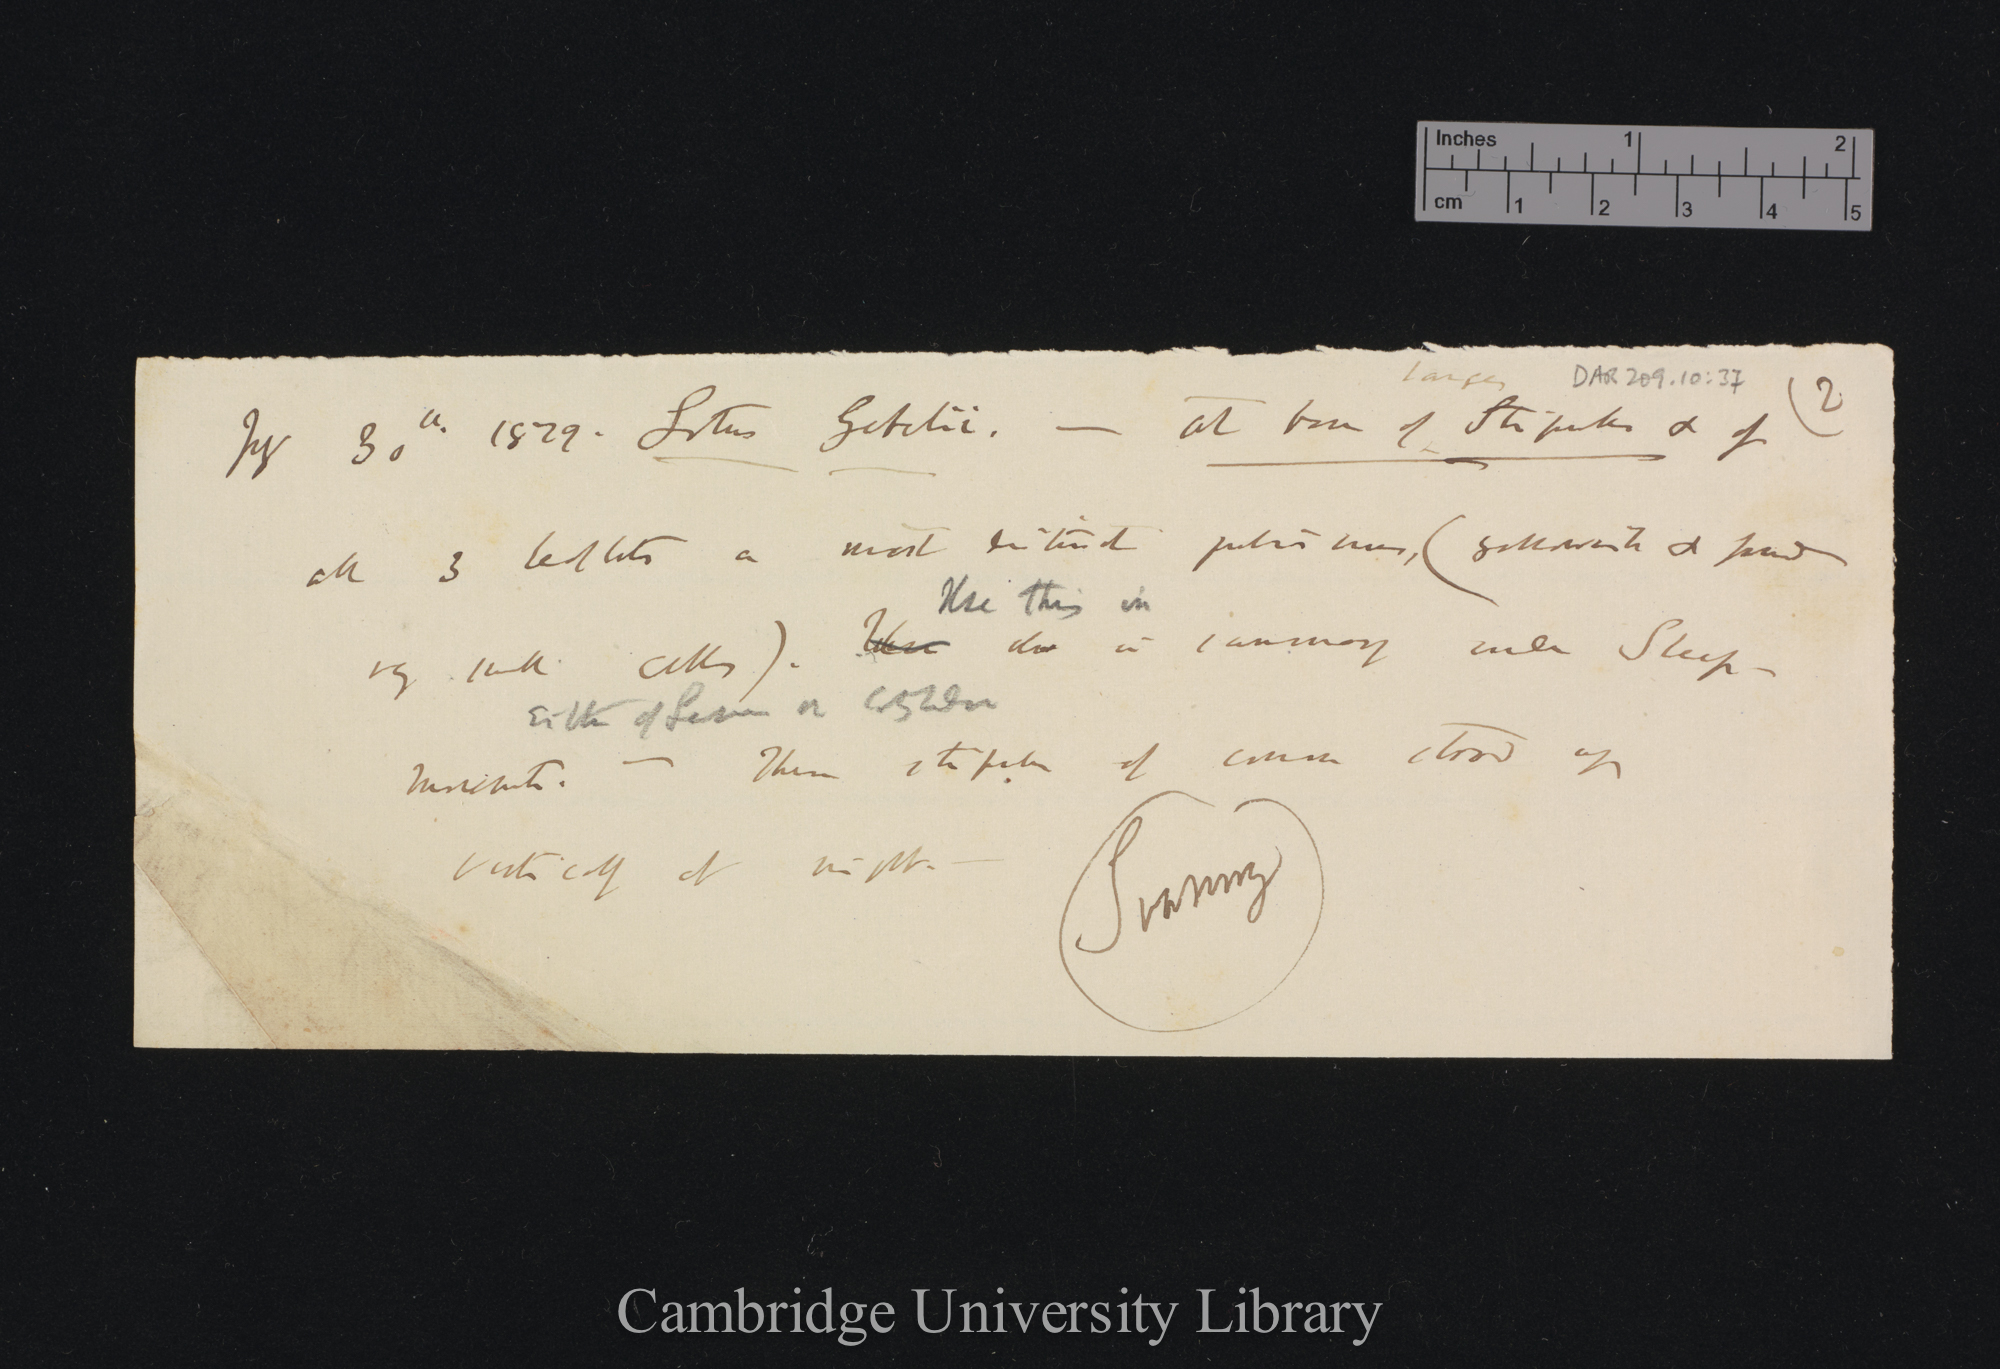 Inches 1 2
cm 1 2 3 4 5
larger DAR 209.10:37 (2
July 30th. 1879. Lotus Gebelii. — at base of Stipules & of
all 3 leaflets a most distinct pulvinus, (yellowish &
very small cells). Use this in
Use also in summary under Sleep-
Either of Leaves or Cotyledons
Movements. — These stipules of course stood up
vertically at night. —
Summary
Cambridge University Library